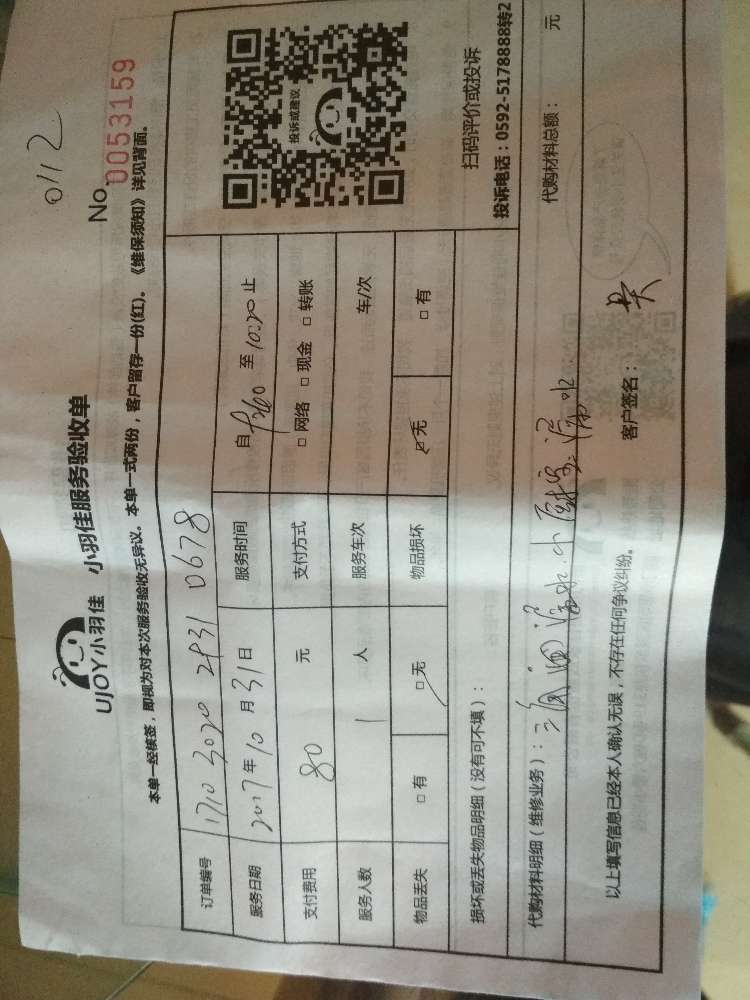 0112
UJOY小羽佳 小羽佳服务验收单
No. 0053159
本单一经核签，即视为对本次服务验收无异议。本单一式两份，客户留存一份(红)。《维保须知》详见背面。
订单编号 1710 3020 2931 0678
服务日期 2017年10月31日 服务时间 自 至10:20止
支付费用 80 元 支付方式 □网络 □现金 □转账
服务人数 1 人 服务车次 车/次
物品丢失 □有 □无 物品损坏 □无 □有
投诉或建议
扫码评价或投诉
投诉电话：0592-5178888转2
损坏或丢失物品明细（没有可不填）：
代购材料明细（维修业务）： 漏水 漏水 代购材料总额： 元
以上填写信息已经本人确认无误，不存在任何争议纠纷。 客户签名： 吴